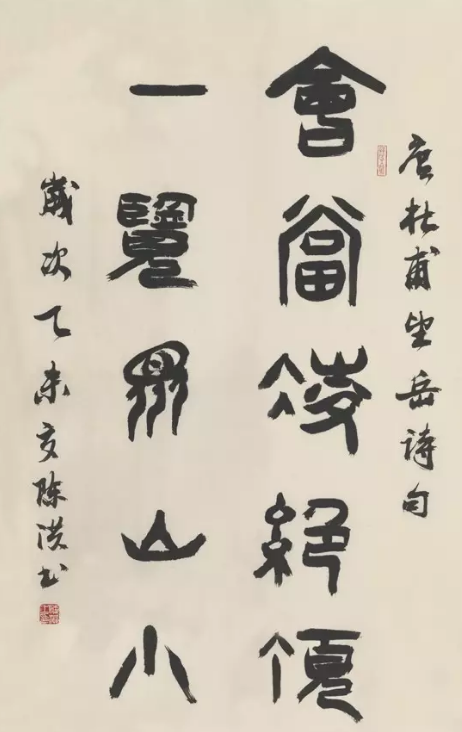 唐杜甫望岳诗句
會當凌絕頂
一覽眾山小
歲次乙未夏陈洪书